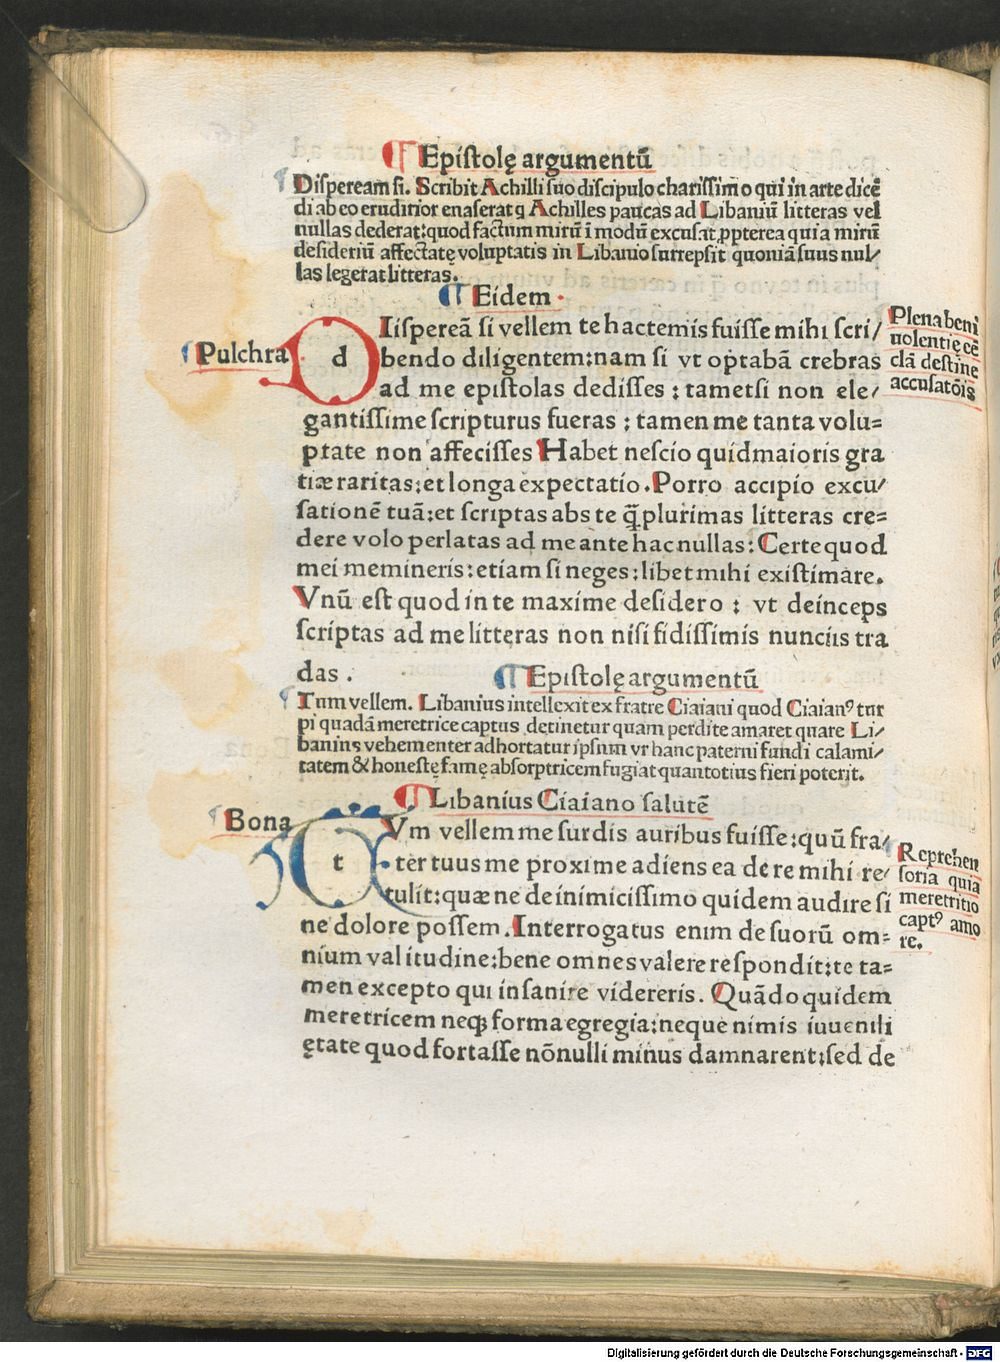 ¶ Epistolę argumentũ
¶ Dispeream si. Scribit Achilli suo discipulo charissimo qui in arte dicẽ
di ab eo eruditior enaserat q Achilles paucas ad Libaniũ litteras vel
nullas dederat: quod factum mirũ ĩ modũ excusat ꝓpterea quia mirũ
desideriũ affectatę voluptatis in Libanio surrepsit quoniã suus nul/
las legerat litteras.
¶ Eidem ·
Pulchra
d
Iispereã si vellem te hactemis fuisse mihi scri/
bendo diligentem: nam si vt optabã crebras
ad me epistolas dedisses : tametsi non ele/
gantissime scripturus fueras : tamen me tanta volu=
ptate non affecisses Habet nescio quid maioris gra
tiæ raritas: et longa expectatio. Porro accipio excu/
sationẽ tuã: et scriptas abs te q̃ plurimas litteras cre=
dere volo perlatas ad me ante hac nullas: Certe quod
mei memineris: etiam si neges: libet mihi existimare.
Vnũ est quod in te maxime desidero : vt deinceps
scriptas ad me litteras non nisi fidissimis nunciis tra
das .
Plena beni
uolentię cẽ
dã destine
accusatõis
¶ Epistolę argumentũ
¶ Tum vellem. Libanius intellexit ex fratre Ciaiani quod Ciaianꝰ tur
pi quadã meretrice captus detinetur quam perdite amaret quare Li/
banius vehementer adhortatur ipsum vr hanc paterni fundi calami/
tatem & honestę famę absorptricem fugiat quantotius fieri poterit.
¶ Libanius Ciaiano salutẽ
Bona
t
Vm vellem me surdis auribus fuisse: quũ fra/
ter tuus me proxime adiens ea de re mihi re/
tulit: quæ ne de inimicissimo quidem audire si
ne dolore possem. Interrogatus enim de suorũ om=
nium valitudine: bene omnes valere respondit: te ta=
men excepto qui insanire videreris. Quãdo quidem
meretricem neqꝫ forma egregia: neque nimis iuuenili
ętate quod fortasse nõnulli minus damnarent: sed de
Reprehen
soria quia
meretritio
captꝰ amo
re.
Digitalisierung gefördert durch die Deutsche Forschungsgemeinschaft - DFG